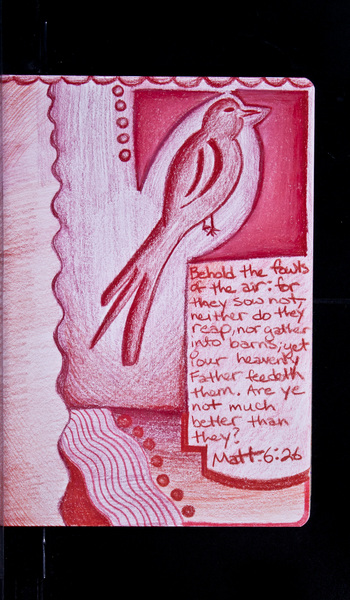 Behold the fowls
of the air: for
they sow not,
neither do they
reap, nor gather
into barns; yet
your heavenly
Father feedeth
them. Are ye
not much
better than
they?
Matt. 6:26